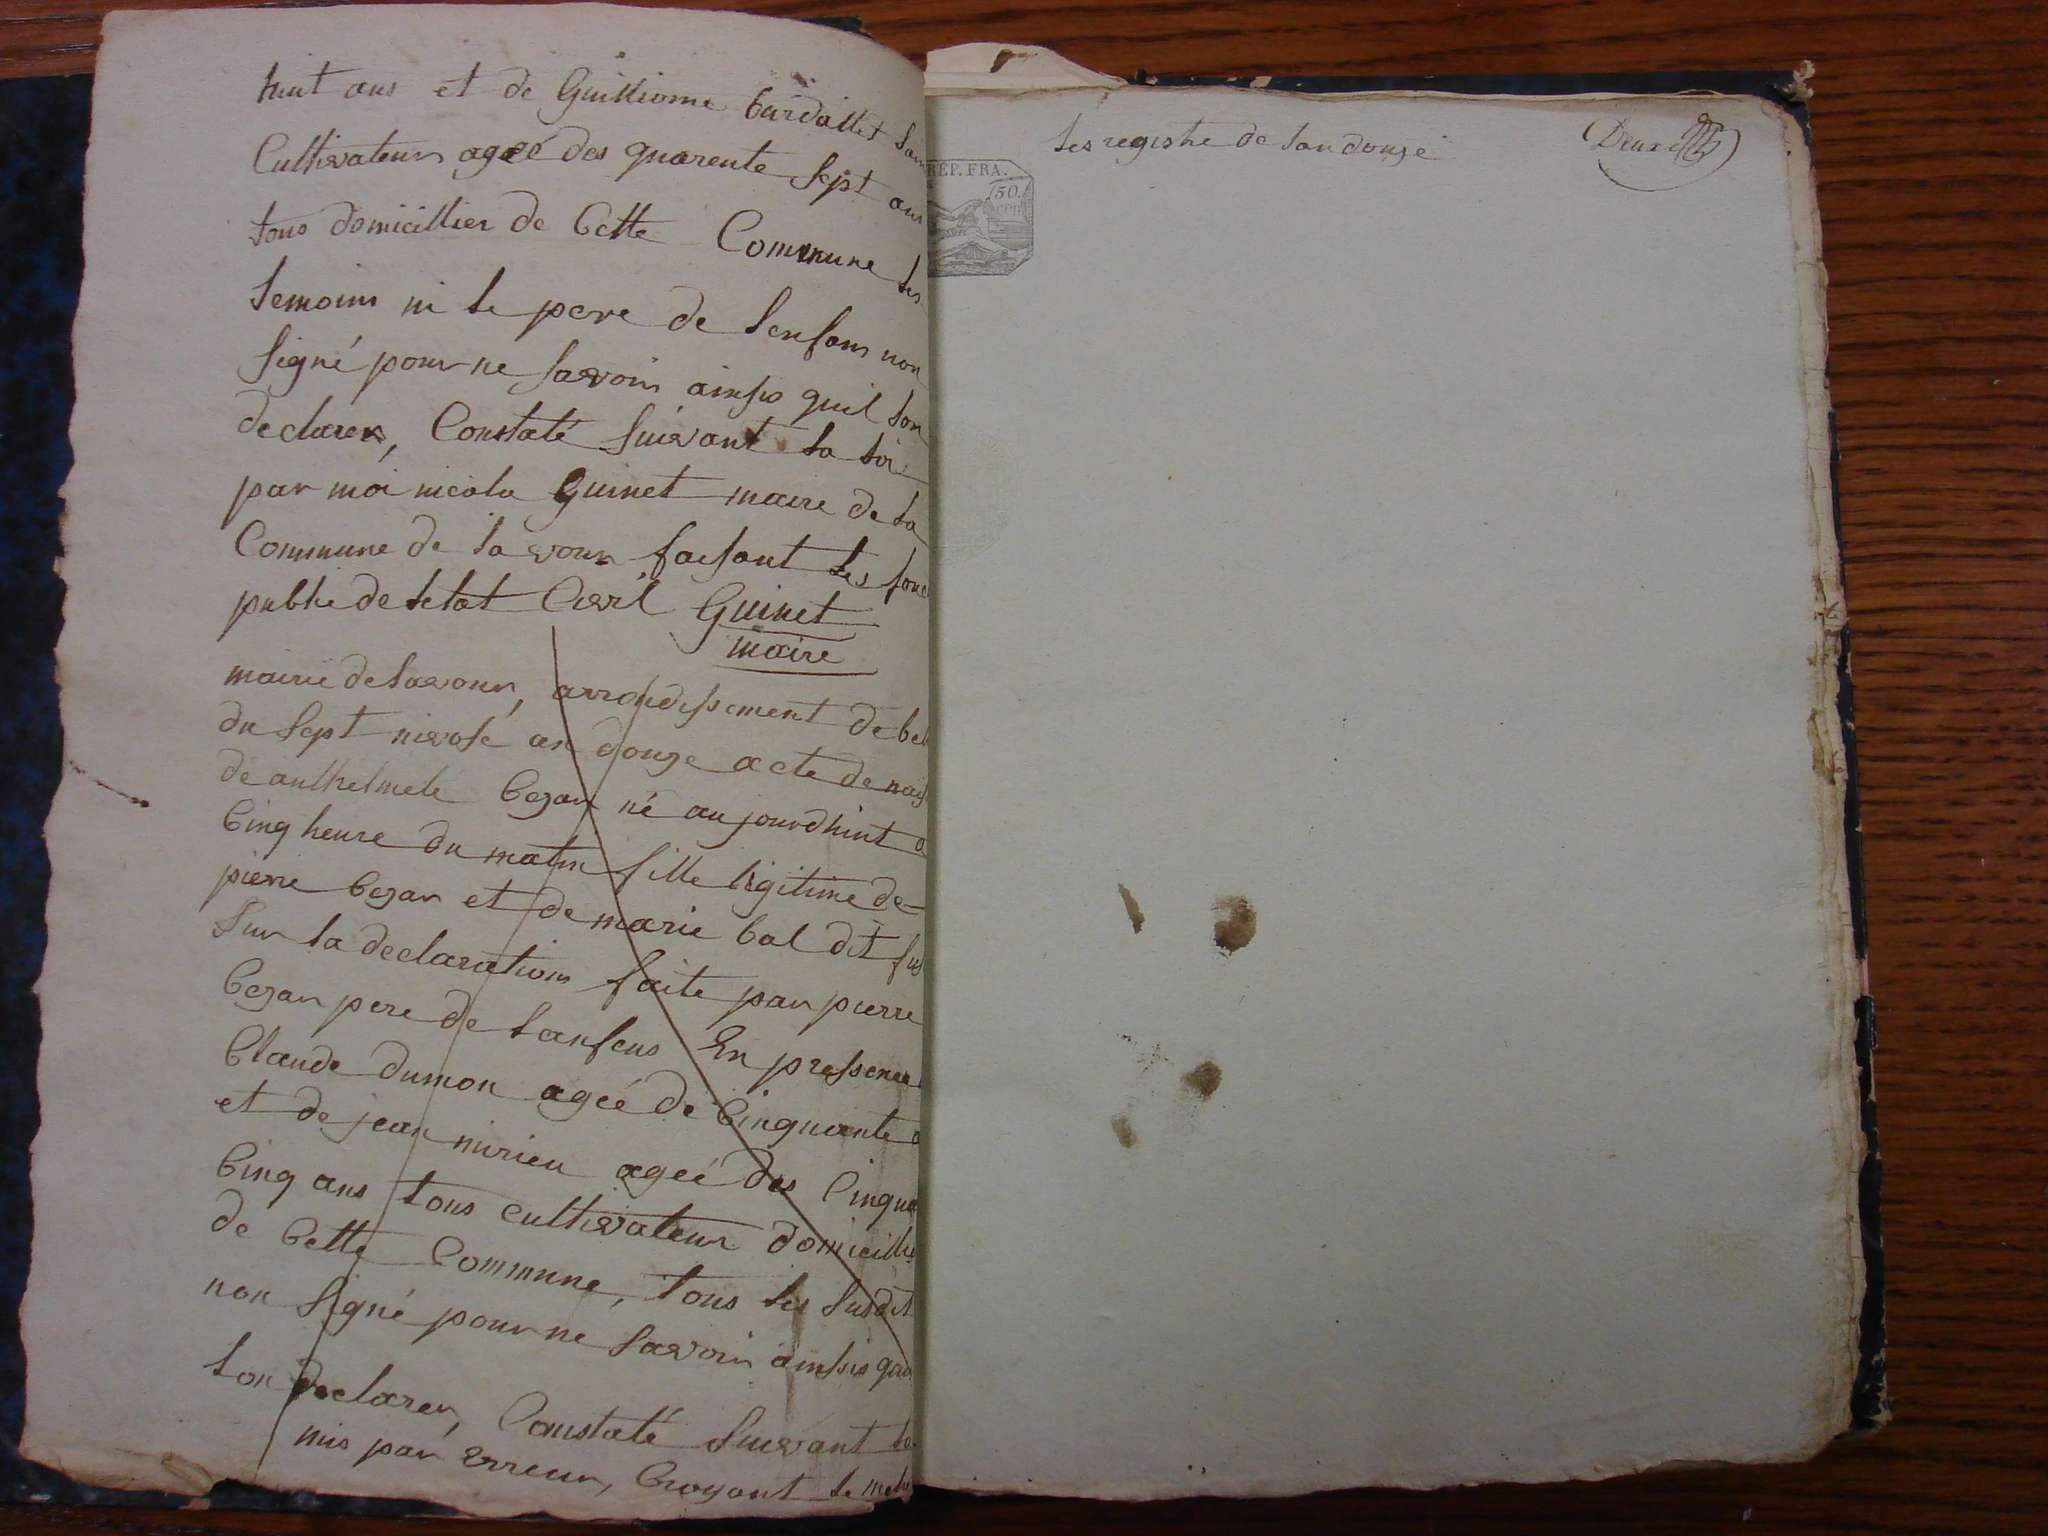 huit ans et de Guilliome burdallet
Cultivateur ageé des quarente sept ans
tous domicillier de Cette Commune Les
temoins ni le pere de lenfans non
Signé pour ne savoir ainsis quil lon
declarer, Constaté suivant la loi
par moi nicola Guinet maire de la
Commune de lavour faisant les fonc
publie de letat Civil Guinet
maire
mairie de lavour, arrondissement de bel
du sept nivose an douze acte de nais
de anthelmele Cezar né aujourdhuit a
Cinq heure du matin fille ligitime de
pierre Cezar et de marie bal dit
Sur la declaration faite par pierre
Cezar pere de lanfens En pressence
Claude dumon ageé de Cinquante
et de jean mirieu ageé des Cinqua
Cinq ans tous cultivateur domicillié
de Cette Commune, tous les susdit
non Signé pour ne savoir ainsis
lon declarer, Constaté suivant la
mis par erreur, Croyant le
Les registre de lan douze
Deux
REP. FRA.
50.
CEN